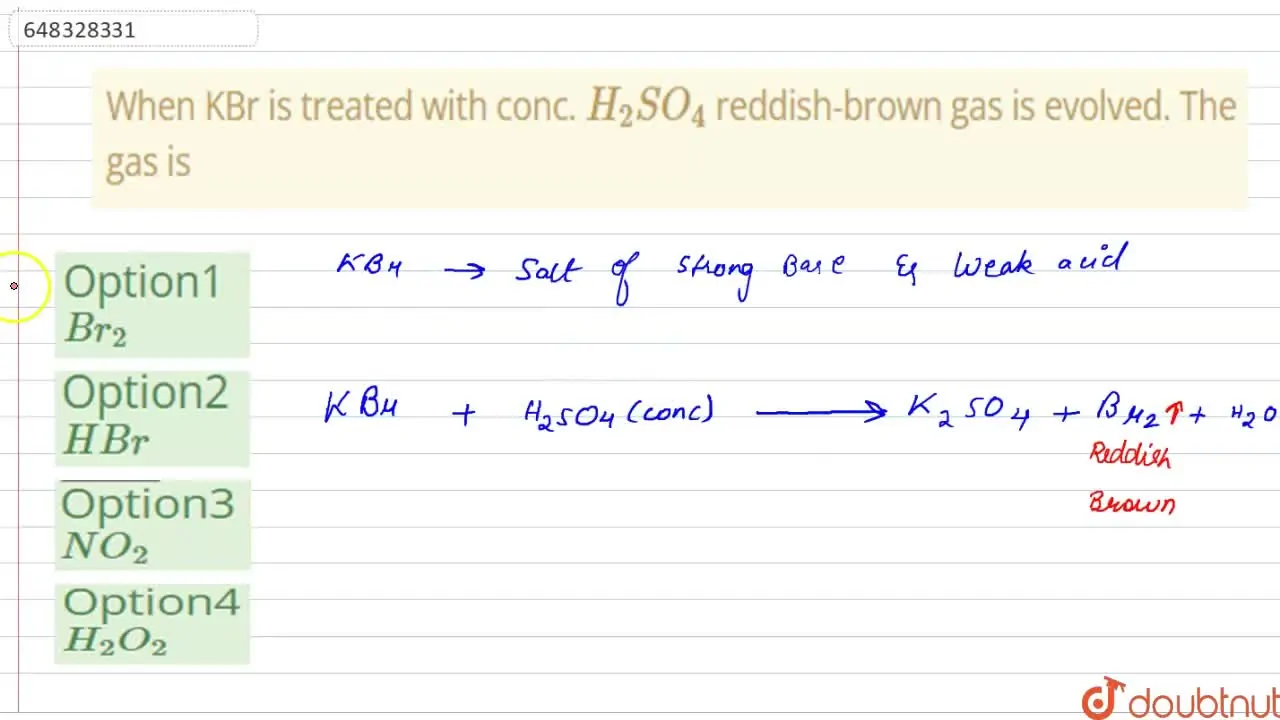 648328331
When KBr is treated with conc. H₂SO₄ reddish-brown gas is evolved. The
gas is
Option1
Br₂
KBr → Salt of strong Base & Weak acid
Option2
HBr
KBr + H₂SO₄ (conc) → K₂SO₄ + Br₂↑ + H₂O
Reddish
Brown
Option3
NO₂
Option4
H₂O₂
doubtnut